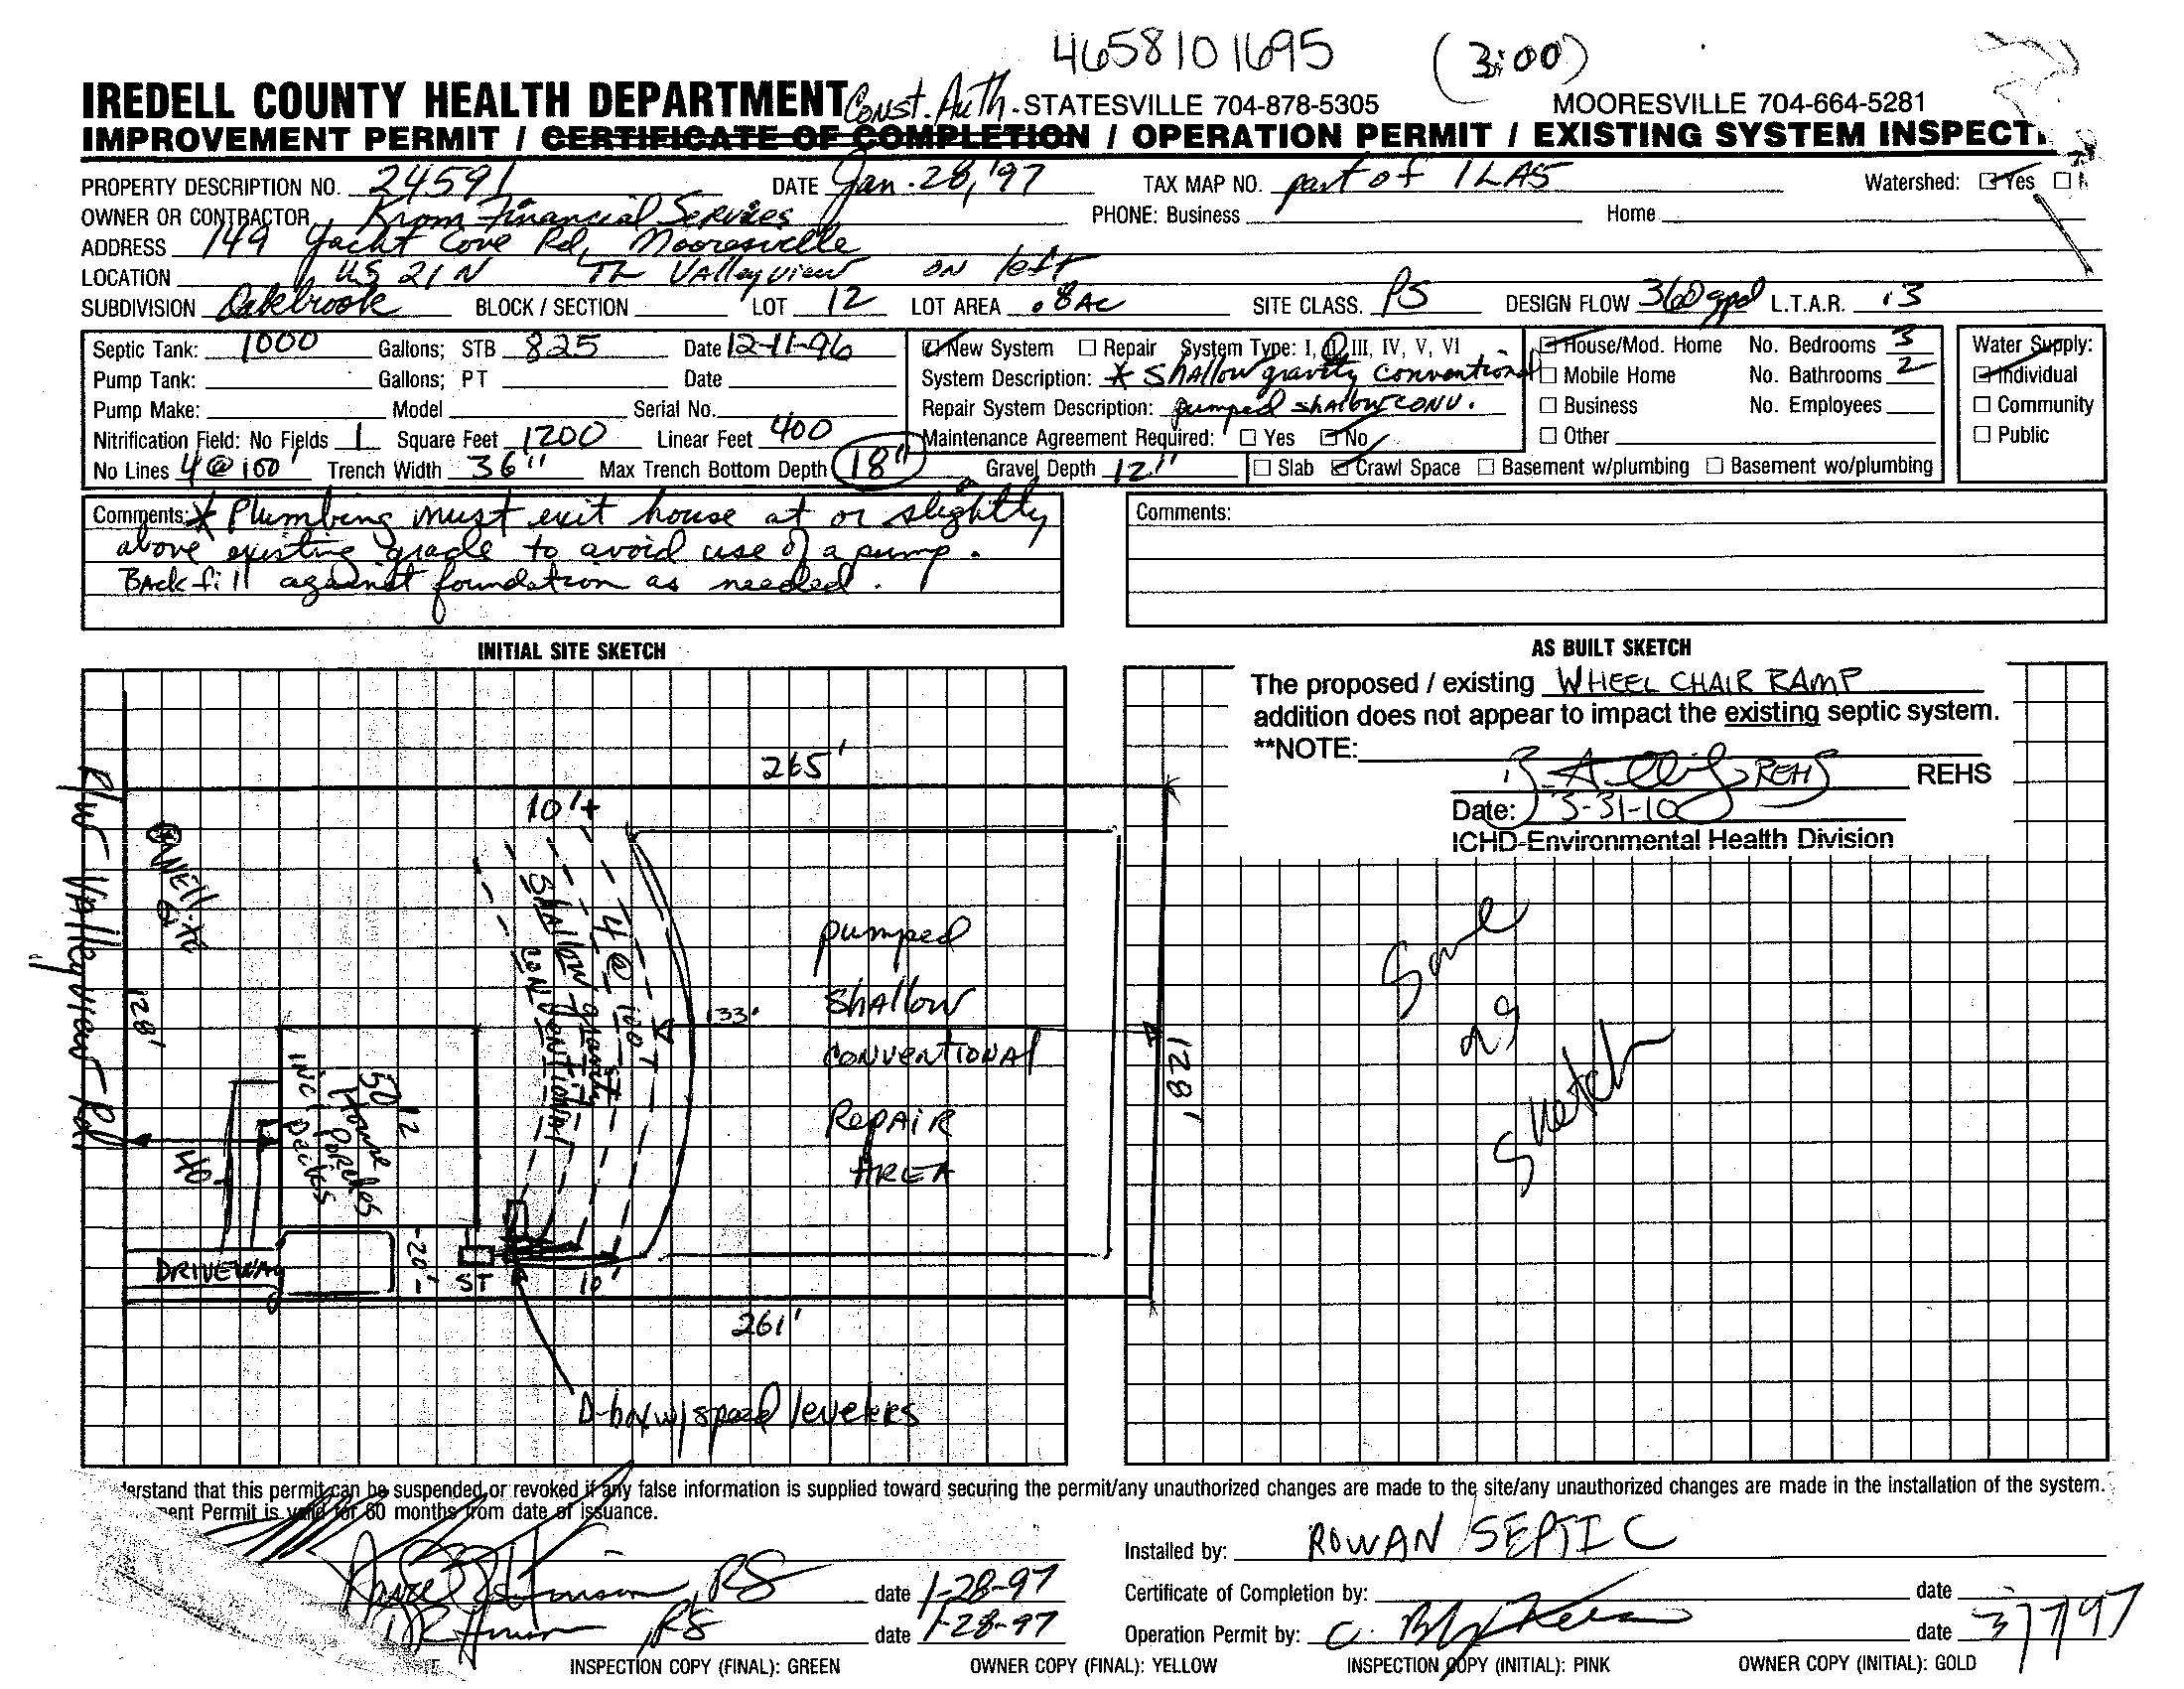 4658101695 (3:00)
IREDELL COUNTY HEALTH DEPARTMENT Const. Auth. STATESVILLE 704-878-5305 MOORESVILLE 704-664-5281
IMPROVEMENT PERMIT / CERTIFICATE OF COMPLETION / OPERATION PERMIT / EXISTING SYSTEM INSPECTI
PROPERTY DESCRIPTION NO. 24591 DATE Jan. 28, '97 TAX MAP NO. part of 1LA5 Watershed: Yes
OWNER OR CONTRACTOR Krom Financial Services PHONE: Business Home
ADDRESS 149 Yacht Cove Rd, Mooresville
LOCATION US 21 N TL Valleyview on left
SUBDIVISION Oakbrook BLOCK / SECTION LOT 12 LOT AREA .8AC SITE CLASS. PS DESIGN FLOW 360 gpd L.T.A.R. .3
Septic Tank: 1000 Gallons; STB 825 Date 12-11-96
Pump Tank: Gallons; PT Date
Pump Make: Model Serial No.
Nitrification Field: No Fields 1 Square Feet 1200 Linear Feet 400
No Lines 4 @ 100' Trench Width 36" Max Trench Bottom Depth 18" Gravel Depth 12"
New System Repair System Type: I, II, III, IV, V, VI
System Description: * Shallow gravity conventional
Repair System Description: pumped shallow conv.
Maintenance Agreement Required: Yes No
Slab Crawl Space Basement w/plumbing Basement wo/plumbing
House/Mod. Home No. Bedrooms 3
Mobile Home No. Bathrooms 2
Business No. Employees
Other
Water Supply:
Individual
Community
Public
Comments: * Plumbing must exit house at or slightly
above existing grade to avoid use of a pump.
Backfill against foundation as needed.
Comments:
INITIAL SITE SKETCH
265'
10'+
R/W Valleyview Rd.
WELL
128'
4 @ 100'
Shallow gravity
CONVENTIONAL
133'
pumped
Shallow
CONVENTIONAL
REPAIR
AREA
128'
50'
House
INCL Porches
Decks
40'
DRIVEWAY
20'
ST
10'
261'
D-box w/ speed levelers
AS BUILT SKETCH
The proposed / existing WHEEL CHAIR RAMP
addition does not appear to impact the existing septic system.
**NOTE:
REHS REHS
Date: 3-31-10
ICHD-Environmental Health Division
Same
as
Sketch
erstand that this permit can be suspended or revoked if any false information is supplied toward securing the permit/any unauthorized changes are made to the site/any unauthorized changes are made in the installation of the system.
ent Permit is valid for 60 months from date of issuance.
RS date 1-28-97
RS date 1-28-97
Installed by: ROWAN SEPTIC
Certificate of Completion by: date
Operation Permit by: date 3/7/97
INSPECTION COPY (FINAL): GREEN OWNER COPY (FINAL): YELLOW INSPECTION COPY (INITIAL): PINK OWNER COPY (INITIAL): GOLD